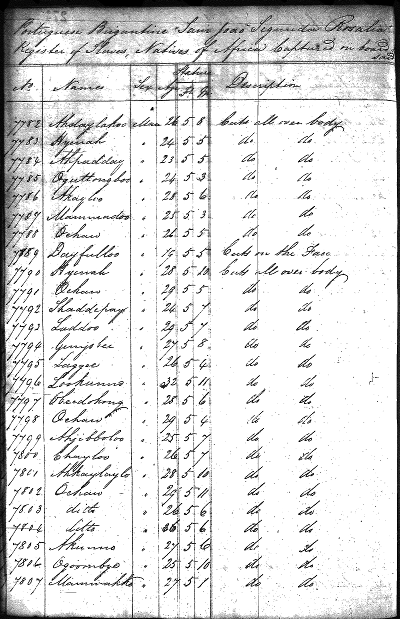 Portuguese Brigantine "San Joaõ Segunda" Rosalia
Register of Slaves, Natives of Africa Captured on board
No Names Sex Age Stature Ft In Description
7782 Man 26 5 8 Cuts all over body
7783 Kyeivah " 24 5 5 do do
7784 Ahpadday " 23 5 5 do do
7785 Oguttongboo " 24 5 3 do do
7786 Akaybo " 28 5 6 do do
7787 Mammadoo " 25 5 3 do do
7788 Ochaw " 26 5 5 do do
7789 Dayfulloo " 5 5 Cuts on the Face
7790 Kyeivah " 28 5 10 Cuts all over body
7791 Ochaw " 29 5 5 do do
7792 Shaddepay " 24 5 7 do do
7793 Laddoo " 29 5 7 do do
7794 " 27 5 8 do do
7795 " 26 5 4 do do
7796 Lookunno " 32 5 11 do do
7797 " 28 5 6 do do
7798 Ochaw " 29 5 4 do do
7799 Ahjibboloo " 25 5 7 do do
7800 Chayloo " 26 5 7 do do
7801 Ahkaylaylo " 28 5 10 do do
7802 Ochaw " 29 5 11 do do
7803 ditto " 26 5 6 do do
7804 ditto " 36 5 6 do do
7805 Akunno " 27 5 6 do do
7806 Ogoombo " 25 5 10 do do
7807 " 27 5 1 do do